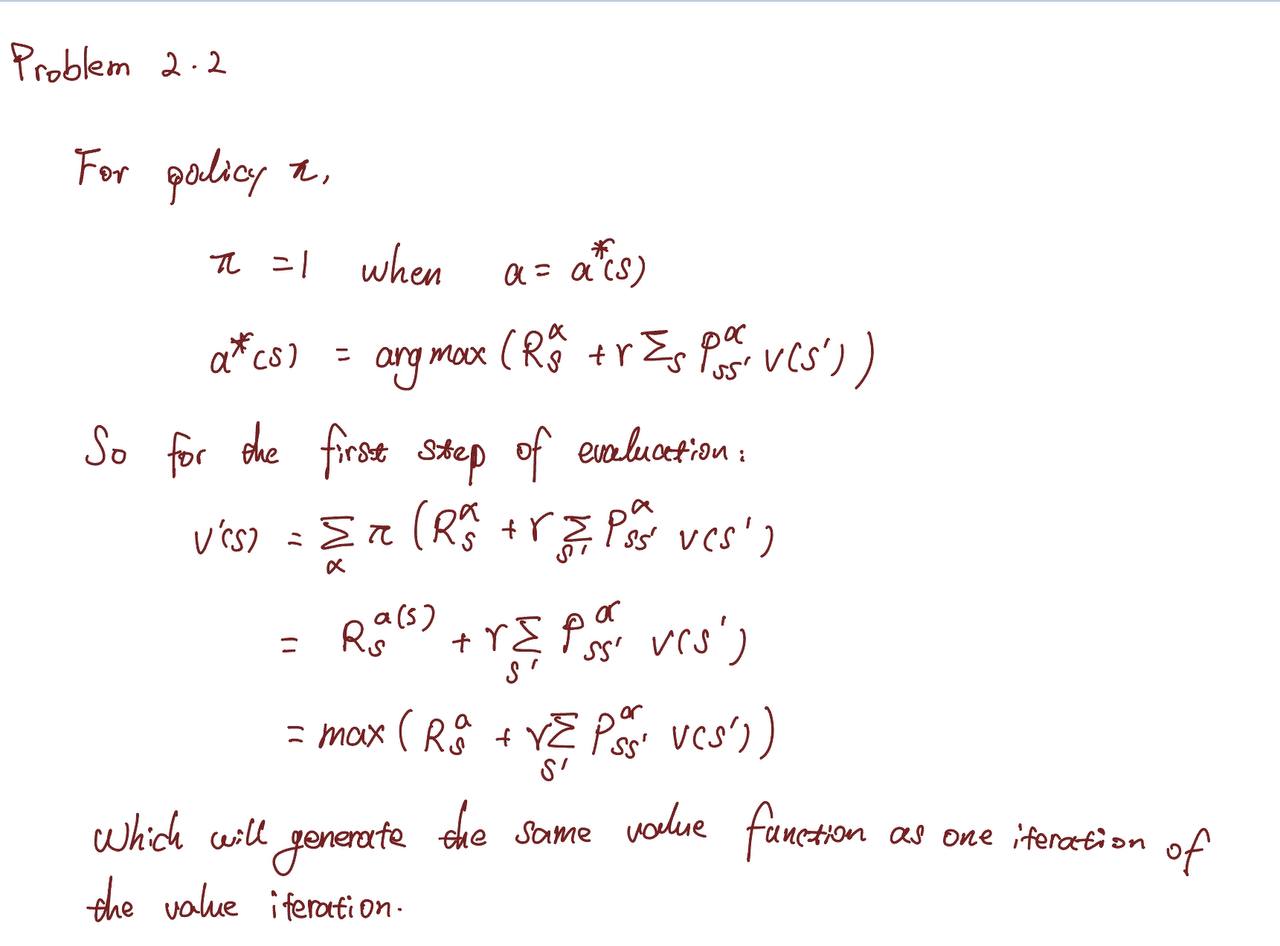 Problem 2.2
For policy π,
π = 1 when a = a*(s)
a*(s) = argmax (R_s^a + r Σ_s P_ss'^a v(s'))
So for the first step of evaluation:
v'(s) = Σ_a π (R_s^a + r Σ_s' P_ss'^a v(s')
= R_s^a(s) + r Σ_s' P_ss'^a v(s')
= max (R_s^a + r Σ_s' P_ss'^a v(s'))
which will generate the same value function as one iteration of
the value iteration.